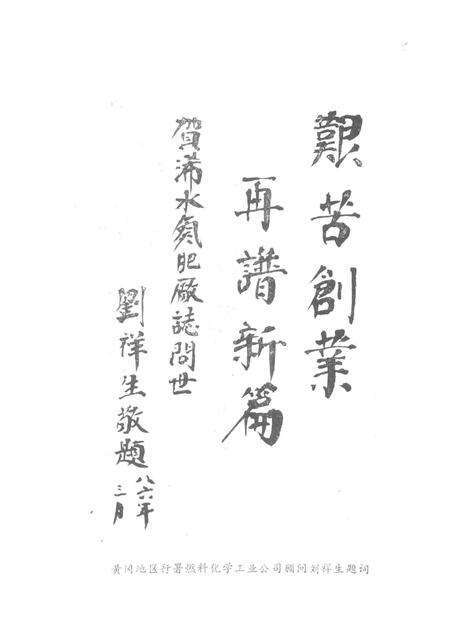 艱苦創業
再譜新篇
賀浠水氮肥厰誌問世
劉祥生敬題
八六年
三月
黄冈地区行署燃料化学工业公司顾问刘祥生题词